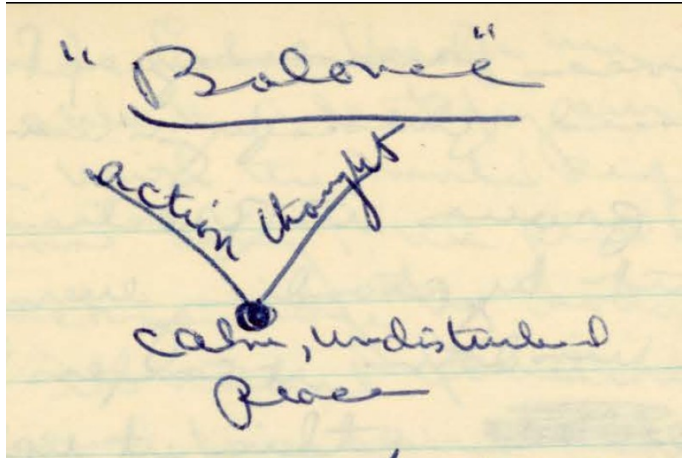 "Balance"
action thought
calm, undisturbed
peace